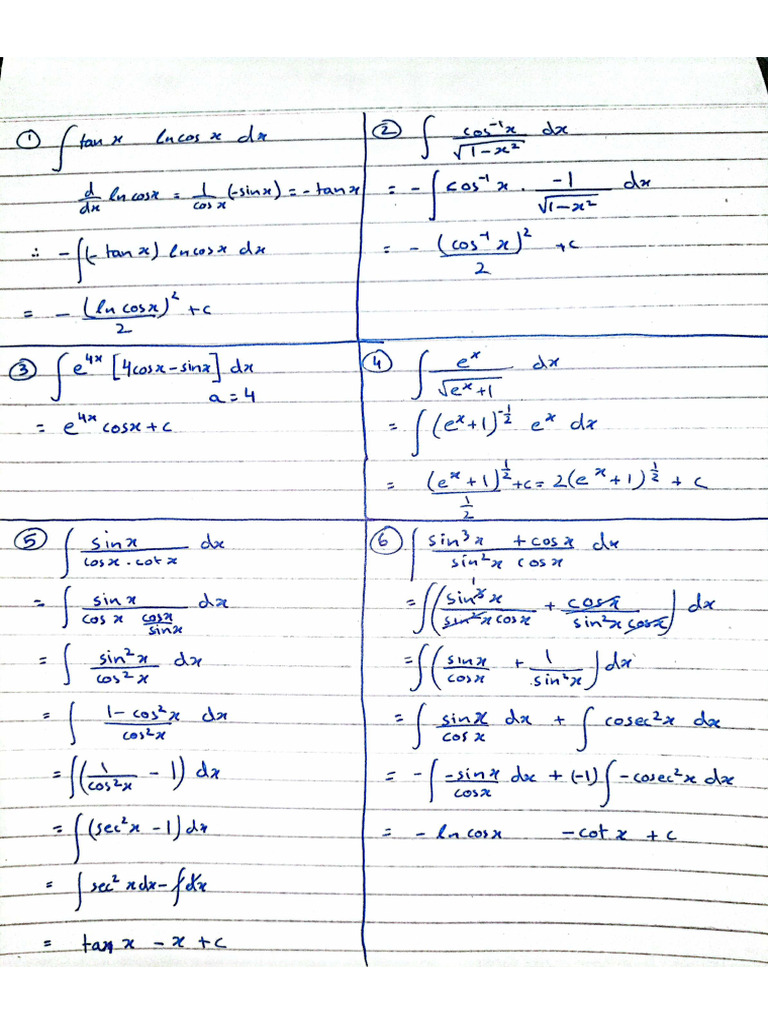 ① ∫ tan x ln cos x dx
d/dx ln cosx = 1/cos x (-sinx) = - tan x
∴ - ∫(- tan x) ln cosx dx
= - (ln cosx)²/2 + c
② ∫ cos⁻¹x/√(1-x²) dx
= - ∫ cos⁻¹ x · -1/√(1-x²) dx
= - (cos⁻¹ x)²/2 + c
③ ∫ e^4x [4cosx - sinx] dx
a = 4
= e^4x cosx + c
④ ∫ e^x/√(e^x+1) dx
= ∫ (e^x+1)^-1/2 e^x dx
= (e^x + 1)^1/2/(1/2) + c = 2(e^x + 1)^1/2 + c
⑤ ∫ sinx/(cosx · cotx) dx
= ∫ sinx/(cos x cosx/sinx) dx
= ∫ sin²x/cos²x dx
= ∫ (1 - cos²x)/cos²x dx
= ∫(1/cos²x - 1) dx
= ∫(sec²x - 1) dx
= ∫ sec² x dx - ∫dx
= tan x - x + c
⑥ ∫ (sin³x + cosx)/(sin²x cosx) dx
= ∫(sin³x/(sin²x cosx) + cosx/(sin²x cosx)) dx
= ∫(sinx/cosx + 1/sin²x) dx
= ∫ sinx/cosx dx + ∫ cosec²x dx
= - ∫ -sinx/cosx dx + (-1) ∫ -cosec²x dx
= - ln cosx - cot x + c